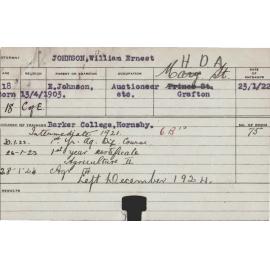 JOHNSON, William Ernest
H D A
AGE RELIGION PARENT OR GUARDIAN OCCUPATION
18
born 13/4/1903.
E. Johnson,
Auctioneer
etc.
Mary St.
Prince St.
Grafton
23/1/22
18 C of E.
Barker College, Hornsby.
Intermediate 1921.
75
20.1.22. 1st Yr. Ag. Dip. Course
26-1-23 1st year certificate
Agriculture II
Left December 1924.
RESULTS